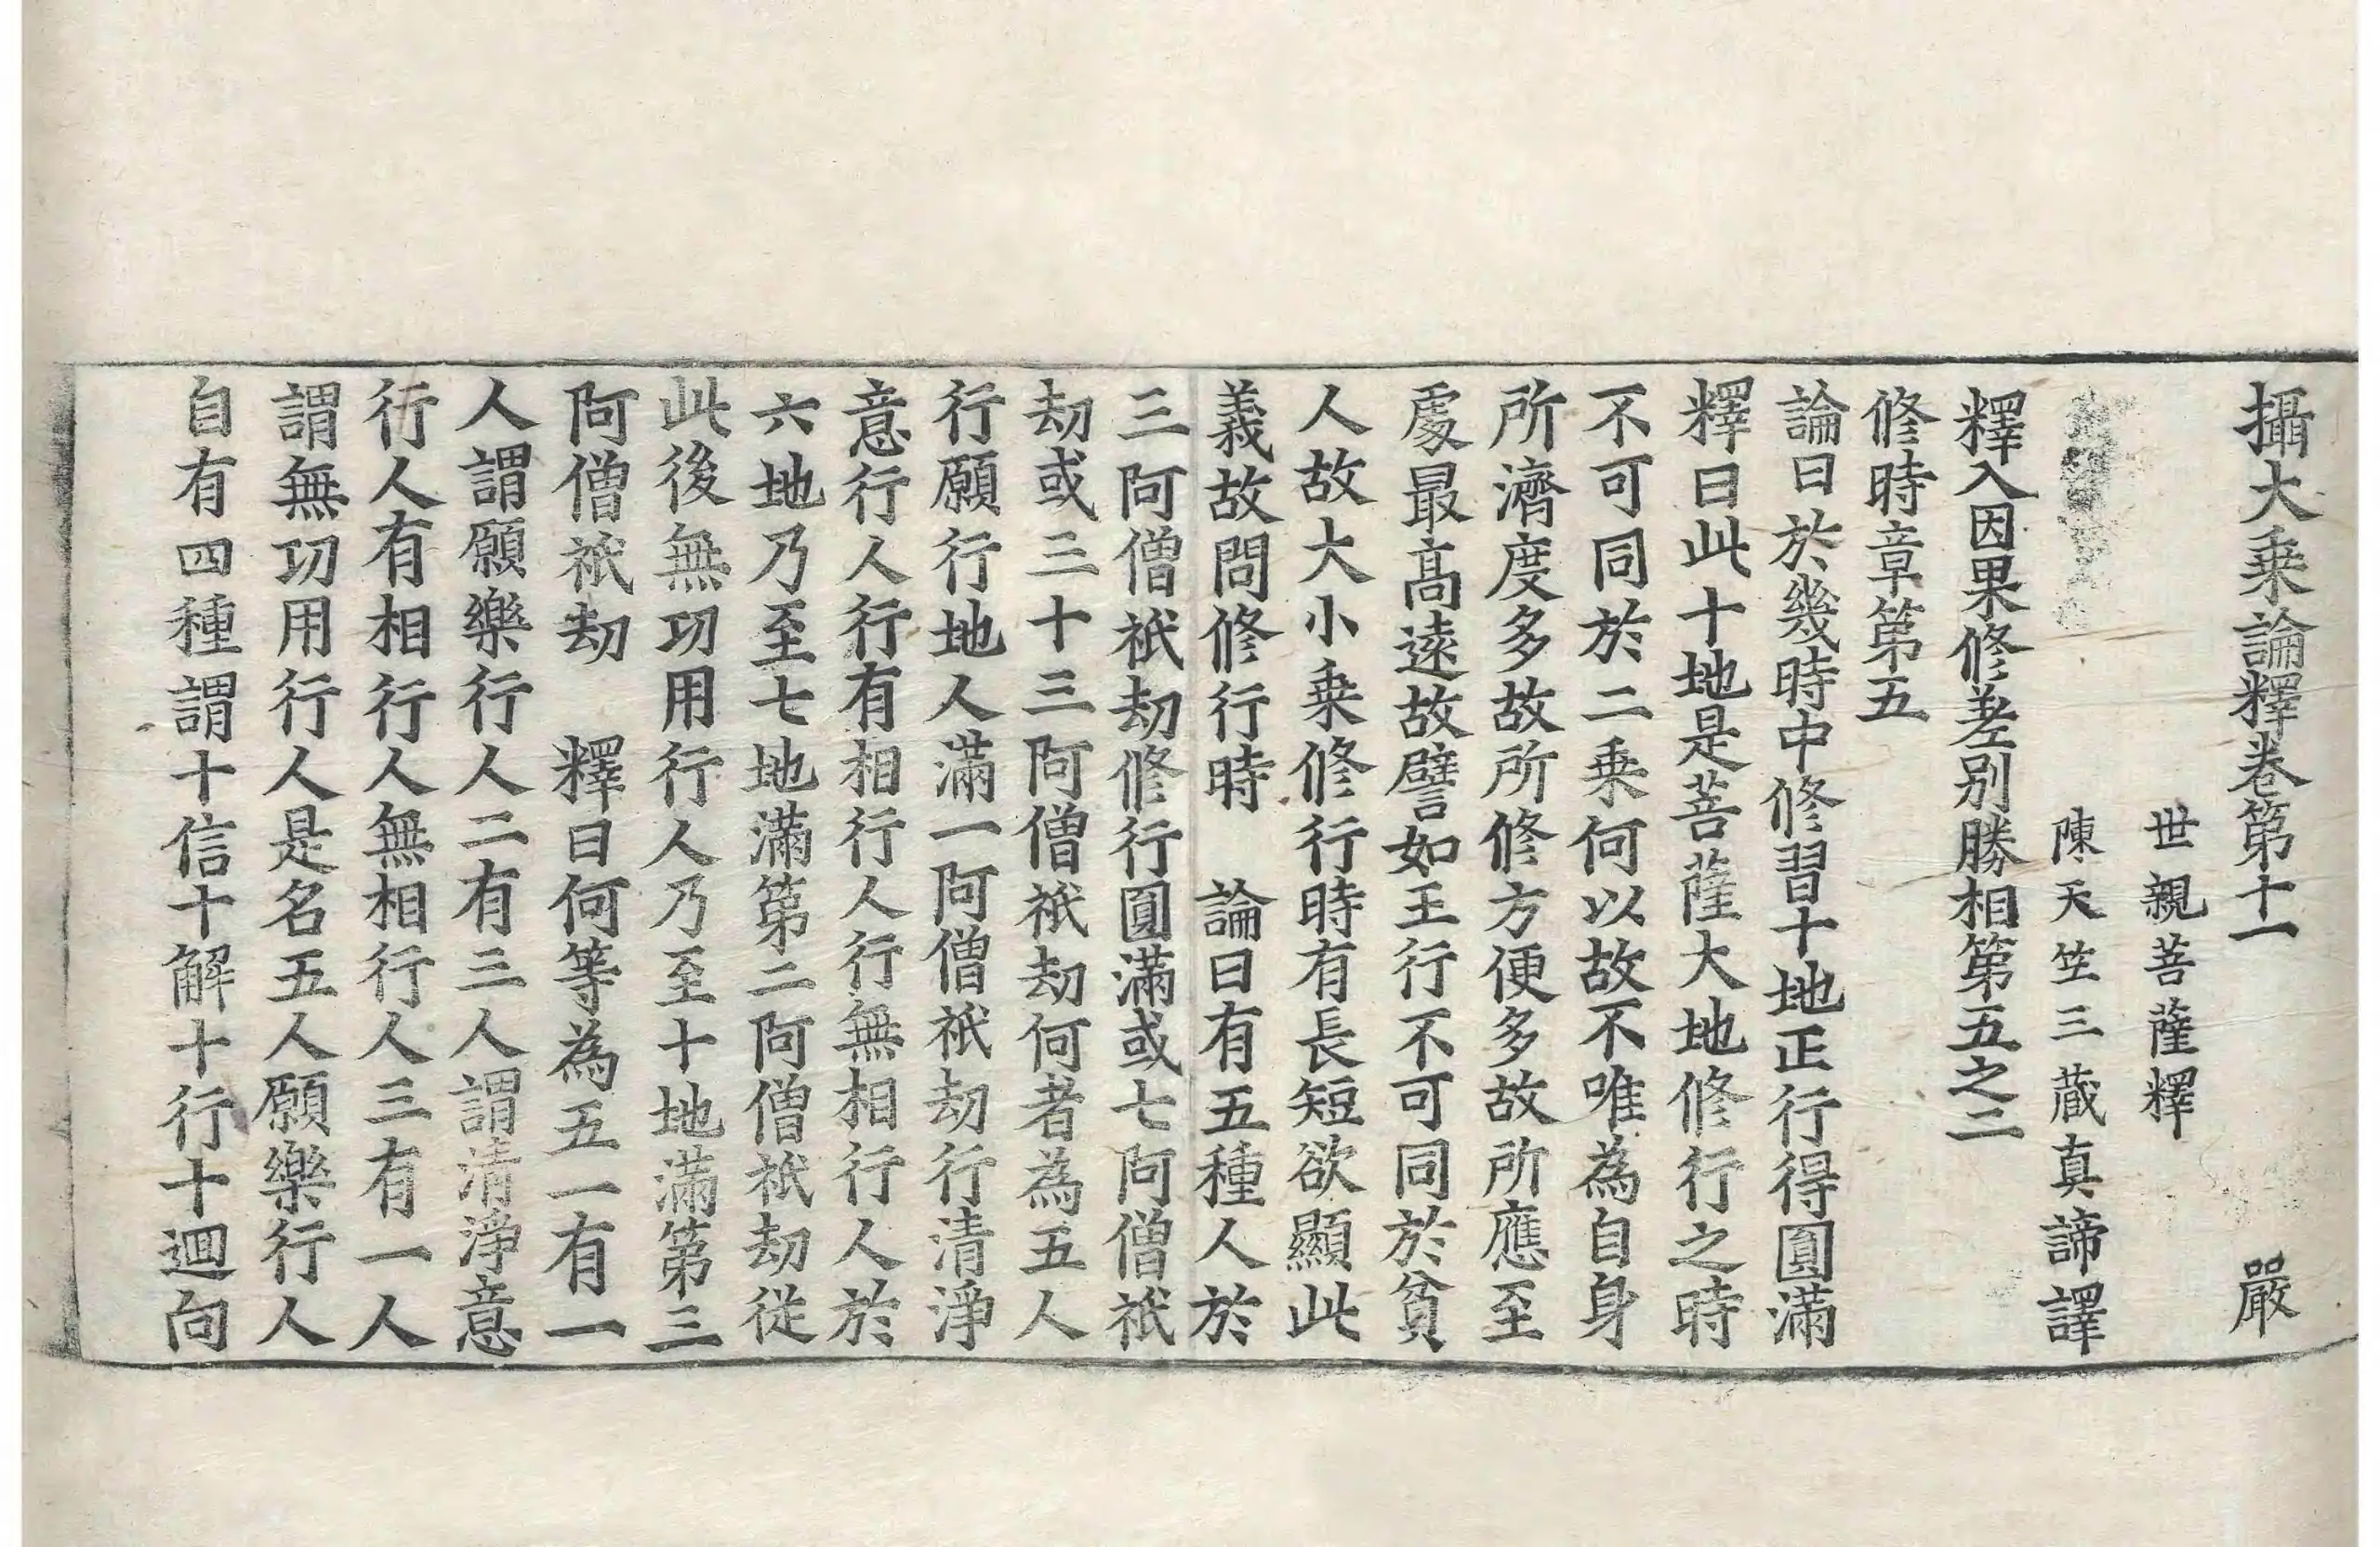 攝大乗論釋卷第十一 嚴
世親菩薩釋
陳天竺三藏真諦譯
釋入因果修差别勝相第五之二
修時章第五
論曰於幾時中修習十地正行得圓滿
釋曰此十地是菩薩大地修行之時
不可同於二乗何以故不唯為自身
所濟度多故所修方便多故所應至
處最髙遠故譬如王行不可同於貧
人故大小乗修行時有長短欲顯此
義故問修行時 論曰有五種人於
三阿僧祇劫修行圓滿或七阿僧祇
劫或三十三阿僧祇劫何者為五人
行願行地人滿一阿僧祇劫行清淨
意行人行有相行人行無相行人於
六地乃至七地滿第二阿僧祇劫從
此後無功用行人乃至十地滿第三
阿僧祇劫 釋曰何等為五一有一
人謂願樂行人二有三人謂清淨意
行人有相行人無相行人三有一人
謂無功用行人是名五人願樂行人
自有四種謂十信十解十行十迴向